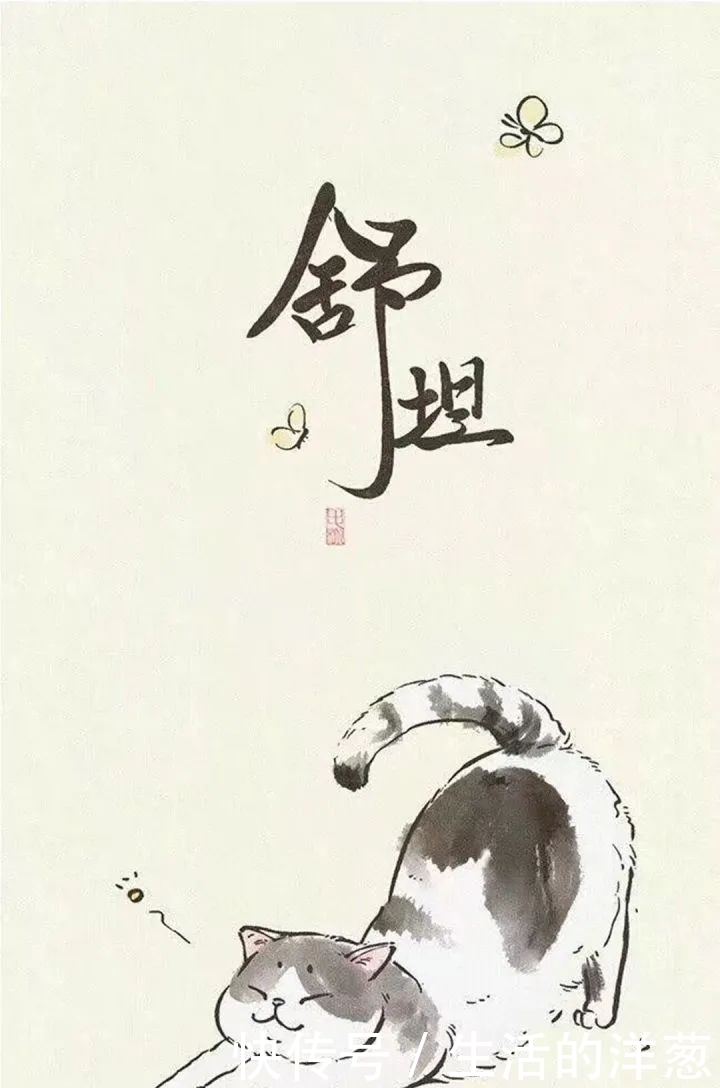 舒坦
快传号 / 生活的洋葱